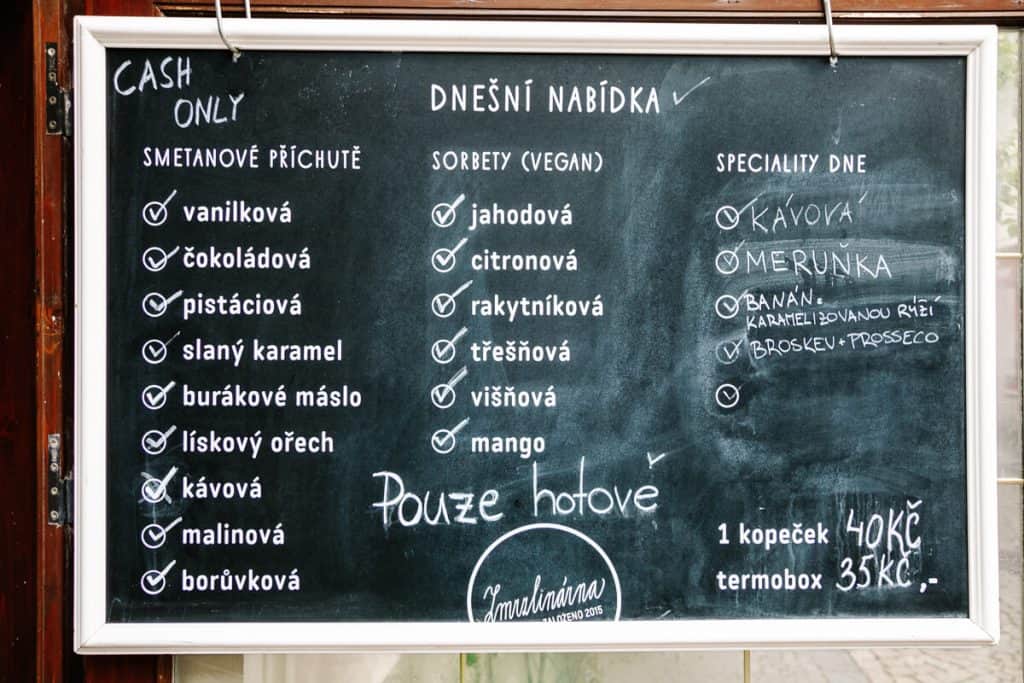 CASH
ONLY
DNEŠNÍ NABÍDKA
SMETANOVÉ PŘÍCHUTĚ
vanilková
čokoládová
pistáciová
slaný karamel
burákové máslo
lískový ořech
kávová
malinová
borůvková
SORBETY (VEGAN)
jahodová
citronová
rakytníková
třešňová
višňová
mango
SPECIALITY DNE
KÁVOVÁ
MERUŇKA
BANÁN S
KARAMELIZOVANOU RÝŽÍ
BROSKEV + PROSSECO
Pouze hotově
1 kopeček 40 KČ
termobox 35 KČ,-
Zmrzlinárna
ZALOŽENO 2015